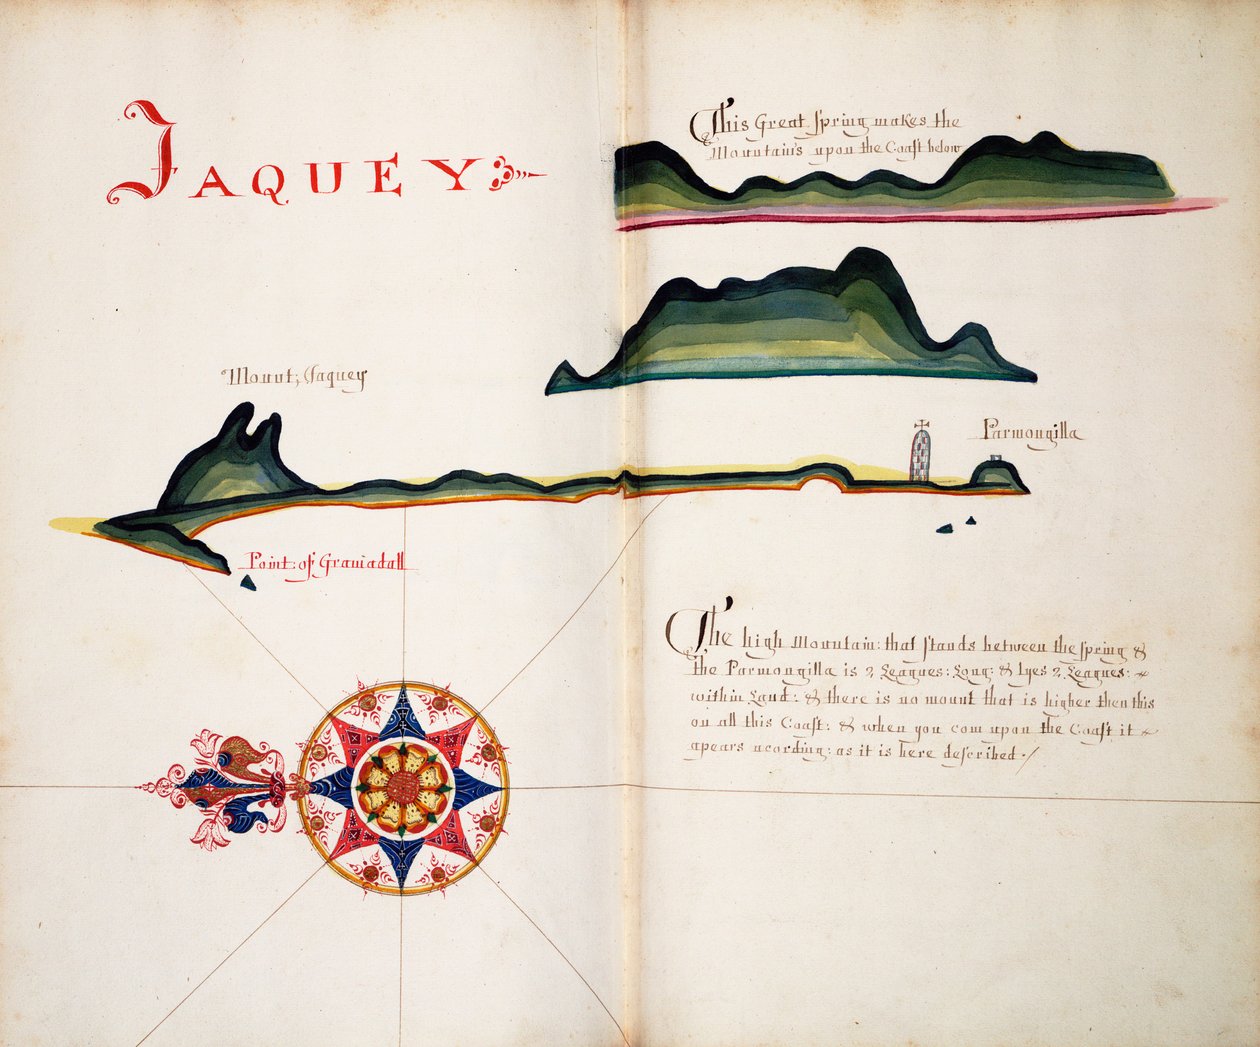 JAQUEY
This Great Spring makes the
Mountains upon the Coast below
Mount; Jaquey
Parmongilla
Point: of Gramadall
The high Mountain: that stands between the spring &
the Parmongilla is 2 Leagues: Long: & lyes 2 Leagues:
within Land: & there is no mount that is higher then this
on all this Coast: & when you com upon the Coast it
apears acording: as it is here described